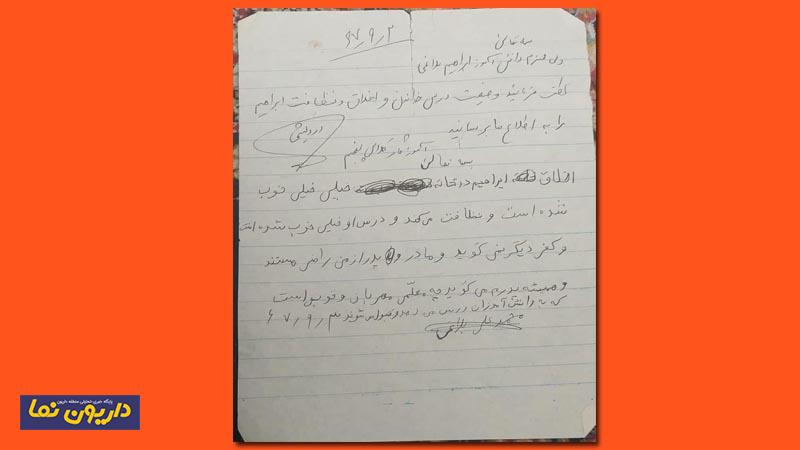 بسمه تعالی
۶۷٫۹٫۲
ولی محترم دانش آموز ابراهیم بلاغی
لطفاً فرمائید وضعیت درس خواندن و اخلاق و نظافت ابراهیم
را به اطلاع ما برسانید
درویشی
آموزگار کلاس پنجم
بسمه تعالی
اخلاق ابراهیم در خانه خیلی خیلی خوب
شده است و نظافت می‌کند و درس او خیلی خوب شده است
و کفر دیگر نمی گوید و مادر و پدر از من راضی هستند
و همیشه پدرم می گوید چه معلمی مهربان و خوب است
که به دانش آموزان درس می دهد
۶۷٫۹٫۳
محمد علی بلاغی
پایگاه خبری تحلیلی منطقه داریون
داریون نما